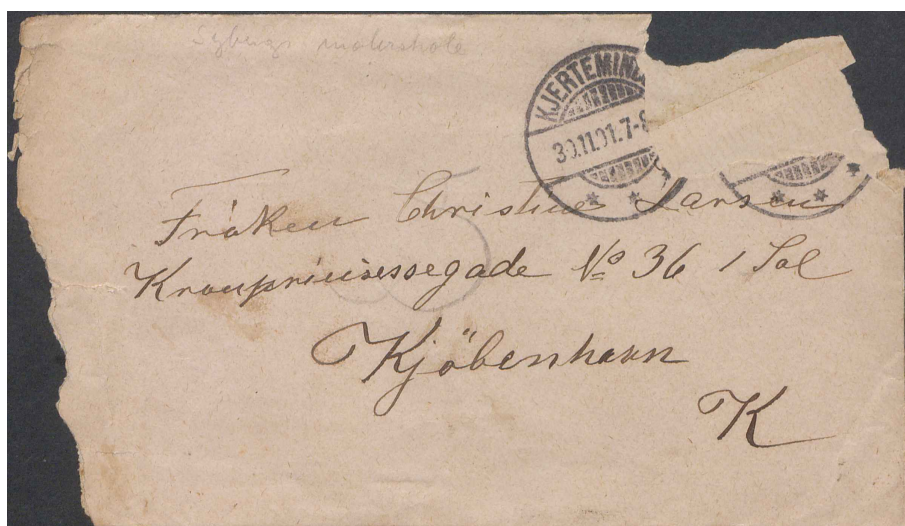 Sybergs malerskole
KJERTEMIN
30.11.01.7-8
Fröken Christine Larsen
Kronprinsessegade No 36 1 Sal
Kjöbenhavn
K